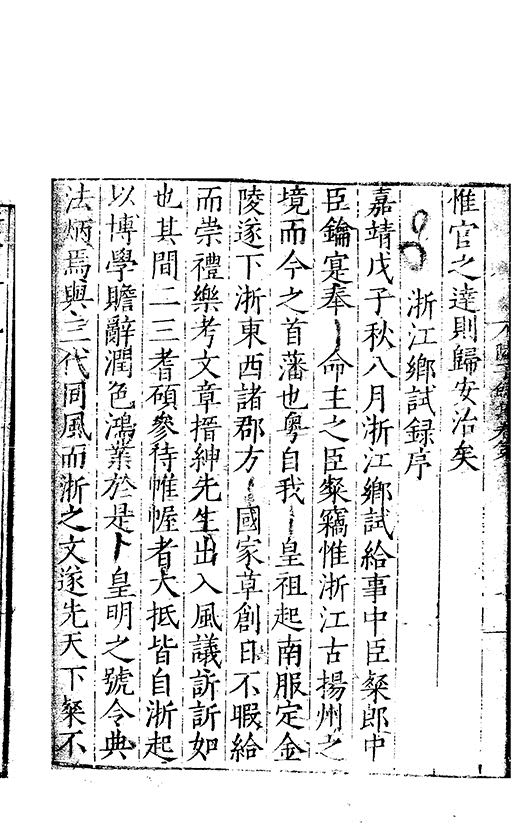 惟官之達則歸安治矣
浙江鄉試録序
嘉靖戊子秋八月浙江鄉試給事中臣粲郎中
臣鑰寔奉命主之臣粲竊惟浙江古揚州之
境而今之首藩也粤自我皇祖起南服定金
陵遂下浙東西諸郡方國家草創日不暇給
而崇禮樂考文章搢紳先生出入風議訢訢如
也其間二三耆碩參侍帷幄者大抵皆自浙起
以博學贍辭潤色鴻業於是皇明之號令典
法炳焉與三代同風而浙之文遂先天下粲不